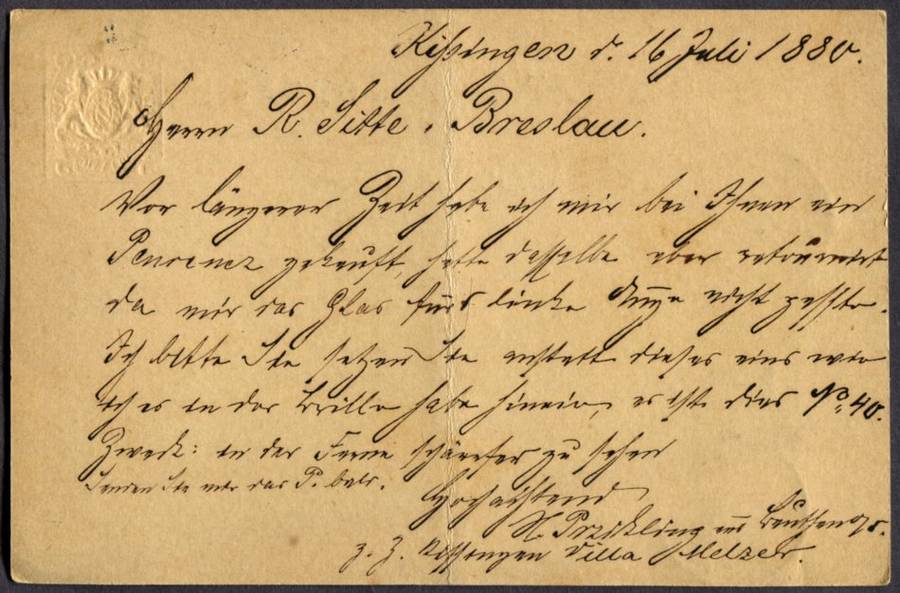 Kissingen d. 16 Juli 1880.
Herrn R. Sitte. Breslau.
Vor längerer Zeit habe ich mir bei Ihnen ein
gekauft, hatte dasselbe aber retourniert
da mir das Glas fürs linke Auge nicht passte.
Ich bitte Sie setzen Sie anstatt dieses eins wie
ich es in der Brille habe hinein, es ist dies No. 40.
Zweck: in der Ferne schärfer zu sehen
Senden Sie mir das P. bald.
Hochachtend
aus Beuthen
z. Z. Kissingen Villa Melzer.